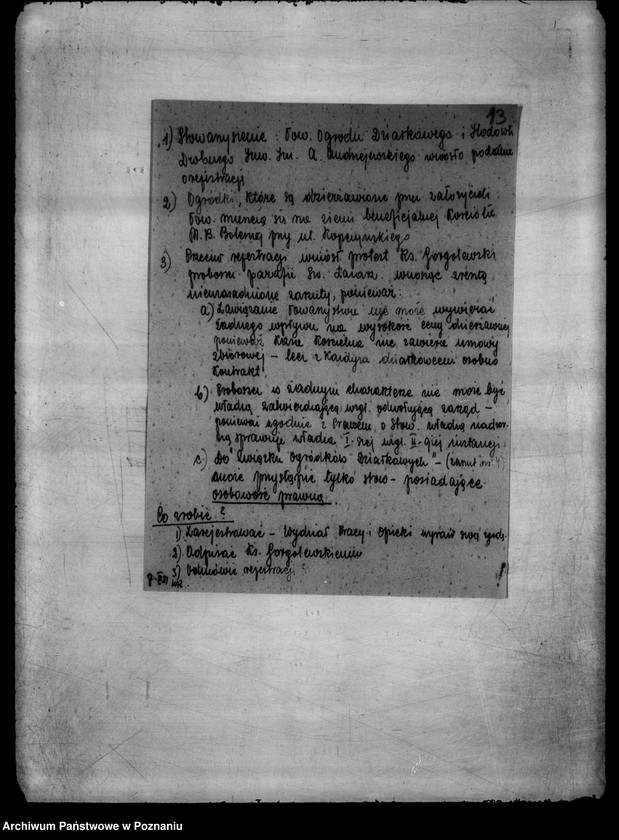 13
1) Stowarzyszenie: Tow. Ogrodu Działkowego i Hodowli
Drobnego Inw. Im. A. wniosło podanie
o rejestrację
2) Ogródki, które są dzierżawione przez założycieli
Tow. mieszczą się na ziemi beneficjalnej Kościoła
M. B. Bolesnej przy ul.
3) Przeciw rejestracji wniósł protest Ks. Gorgolewski
proboszcz parafii Św. Łazarz. wnosząc zresztą
nieuzasadnione zarzuty, ponieważ:
a) Zawiązanie Towarzystwa nie może wywierać
żadnego wpływu na wysokość ceny dzierżawnej
ponieważ Kasa Kościelna nie zawiera umowy
zbiorowej – lecz z każdym działkowcem osobno
kontrakt.
b) Proboszcz w żadnym charakterze nie może być
władzą zatwierdzającą wzgl. odwołującą zarząd –
ponieważ zgodnie z Prawem o Stow. władzę nadzor-
czą sprawuje władza I-szej wzgl. II-giej instancji.
c) Do "Związku Ogródków Działkowych" – (zarzut nr 4)
może przystąpić tylko stow. posiadające
osobowość prawną.
Co zrobić?
1) Zarejestrować – Wydział Pracy i Opieki wyraził swą zgodę.
2) Odpisać Ks. Gorgolewskiemu
3) Odmówić rejestracji?
Archiwum Państwowe w Poznaniu